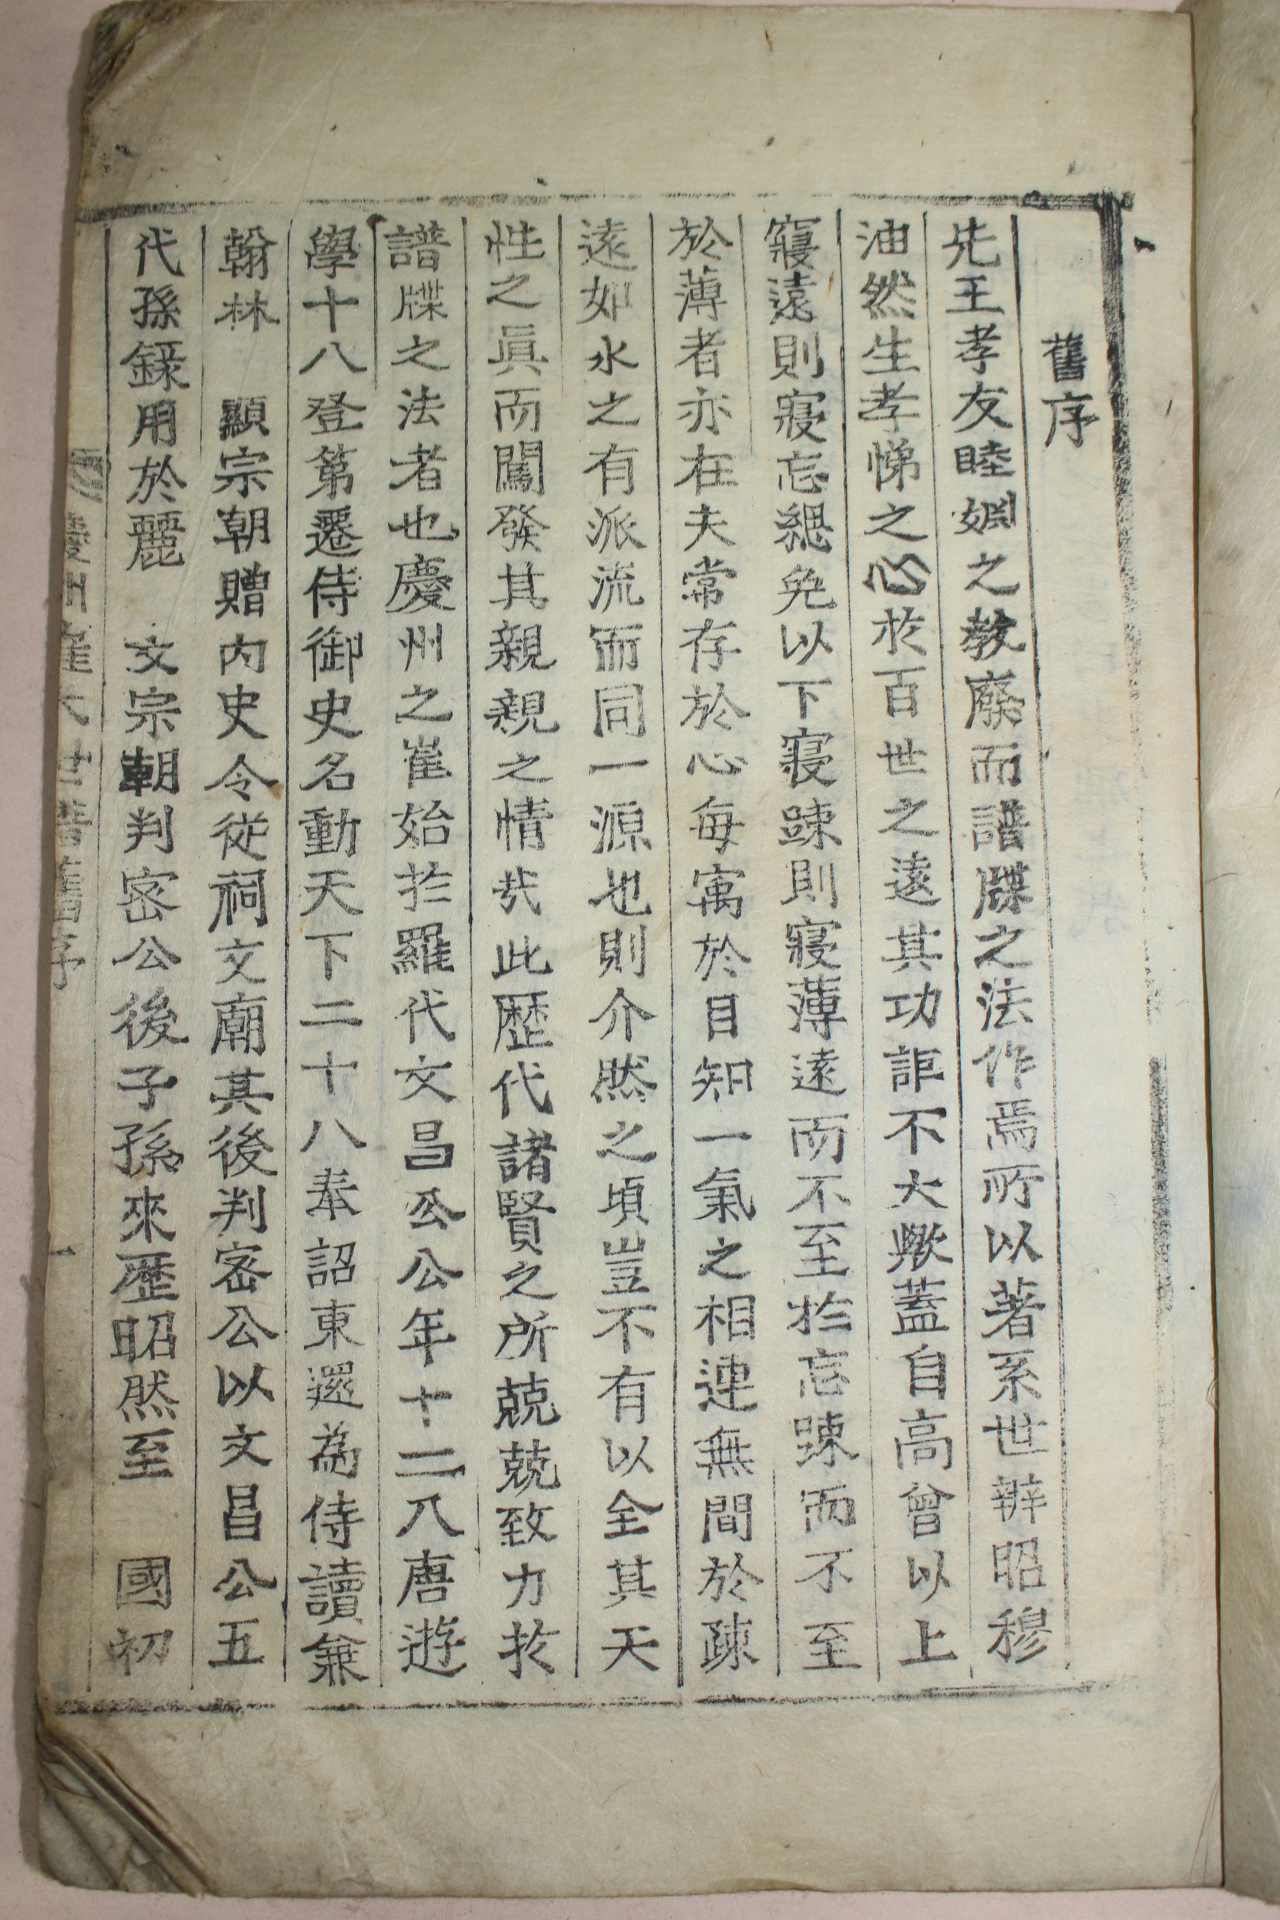 舊序
先王孝友睦婣之教廢而譜牒之法作焉所以著系世辨昭穆
油然生孝悌之心於百世之遠其功詎不大歟蓋自高曾以上
寢遠則寢忘緦免以下寢踈則寢薄遠而不至於忘踈而不至
於薄者亦在夫常存於心每寓於目知一氣之相連無間於疎
遠如水之有派流而同一源也則介然之頃豈不有以全其天
性之眞而闖發其親親之情㢤此歷代諸賢之所兢兢致力於
譜牒之法者也慶州之崔始於羅代文昌公公年十二入唐遊
學十八登第遷侍御史名動天下二十八奉詔東還為侍讀兼
翰林 顯宗朝贈內史令從祠文廟其後判密公以文昌公五
代孫錄用於麗 文宗朝判密公後子孫來歷昭然至 國初
慶州崔大世譜舊序 一